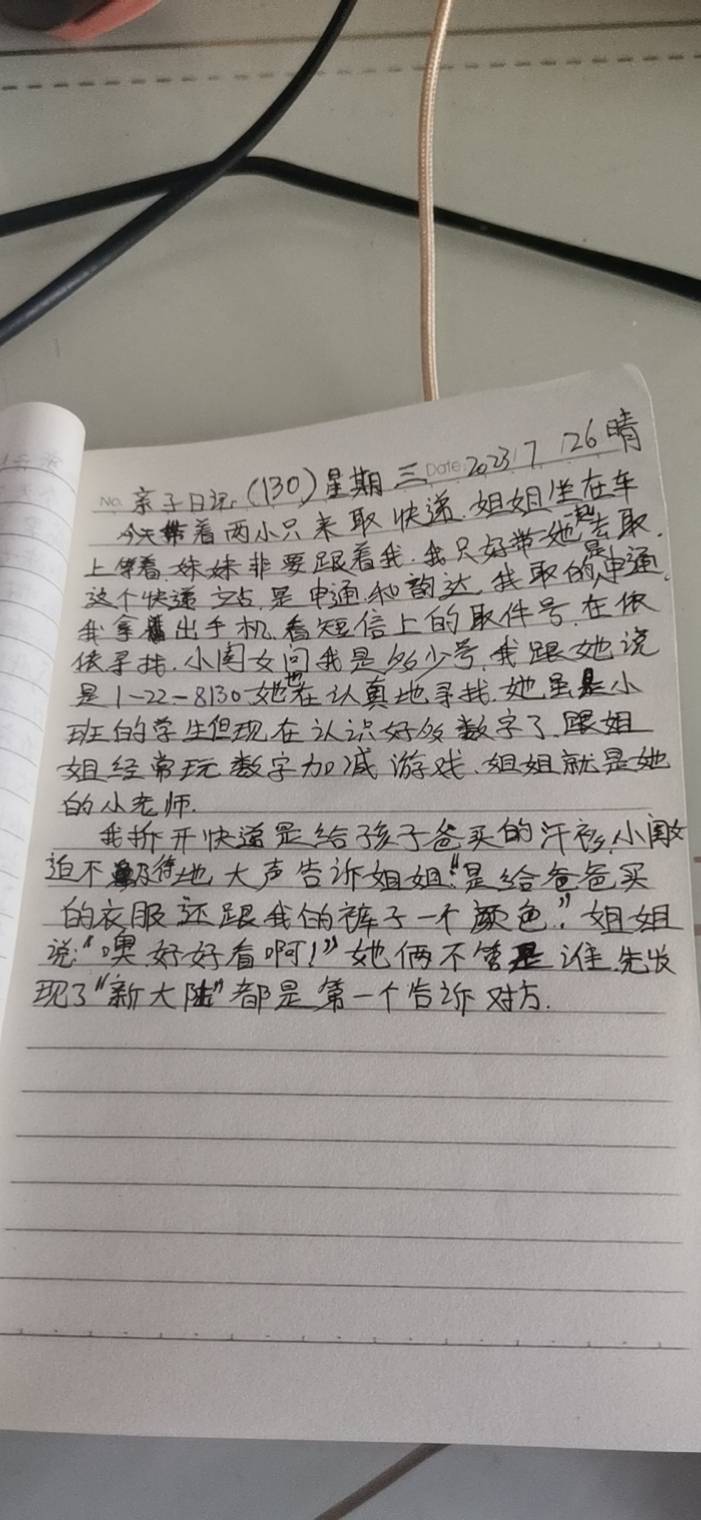 No. 亲子日记(130)星期三 Date 2023 7 26 晴
今天带着两小只来取快递.姐姐坐在车
上等着.妹妹非要跟着我.我只好带她一起去取.
这个快递站.是申通和韵达.我取的是申通.
我拿出手机.看短信上的取件号.在依
依寻找.小闺女问我是多少号.我跟她说
是1-22-8130她也在认真地寻找.她虽是小
班的学生但现在认识好多数字了.跟姐
姐经常玩数字加减游戏.姐姐就是她
的小老师.
我拆开快递是给孩子爸买的汗衫.小闺女
迫不及待地大声告诉姐姐:"是给爸爸买
的衣服还跟我的裤子一个颜色."姐姐
说:"噢.好好看啊!"她俩不管是谁.先发
现了"新大陆"都是第一个告诉对方.